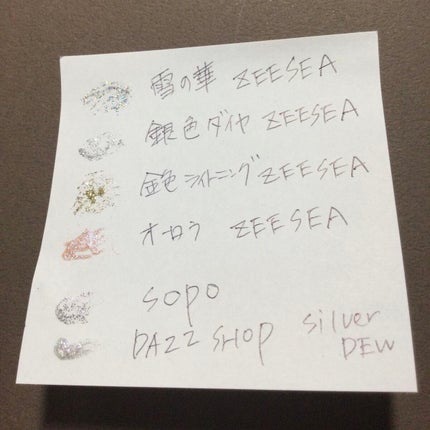 雪の華 ZEESEA
銀色ダイヤ ZEESEA
金色ライトニング ZEESEA
オーロラ ZEESEA
sopo
DAZZ SHOP silver
DEW